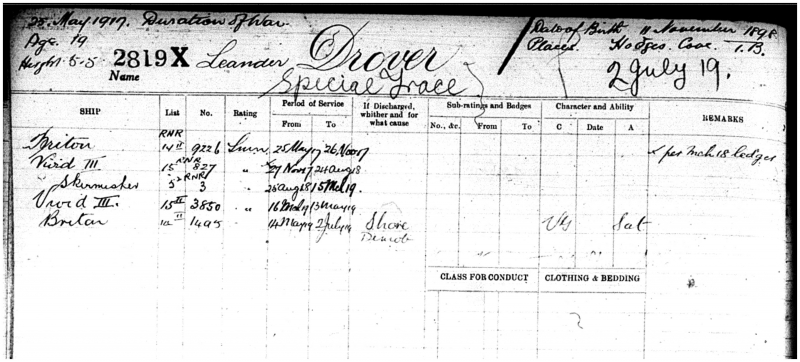 25 May 1917. Duration of War.
Age. 19
Height. 5-5
2819X Leander Drover
Name
Special Grace
Date of Birth 11 November 1898
Place. Hodges Cove. T.B.
2 July 19.
SHIP List No. Rating Period of Service If Discharged, whither and for what cause Sub-ratings and Badges Character and Ability REMARKS
From To No., &c. From To C Date A
Briton RNR 14 II 9226 Smn 25 May 17 26 Nov 17 per Mch 18 ledger
Vivid III 15 RNR 827 " 27 Nov 17 24 Aug 18
Skirmisher 5 RNR 3 " 25 Aug 18 15 Mch 19
Vivid III. 15 II 3850 " 16 Mch 19 13 May 19
Briton 14 II 1495 14 May 19 2 July 19 Shore VG Sat
Demob
CLASS FOR CONDUCT CLOTHING & BEDDING